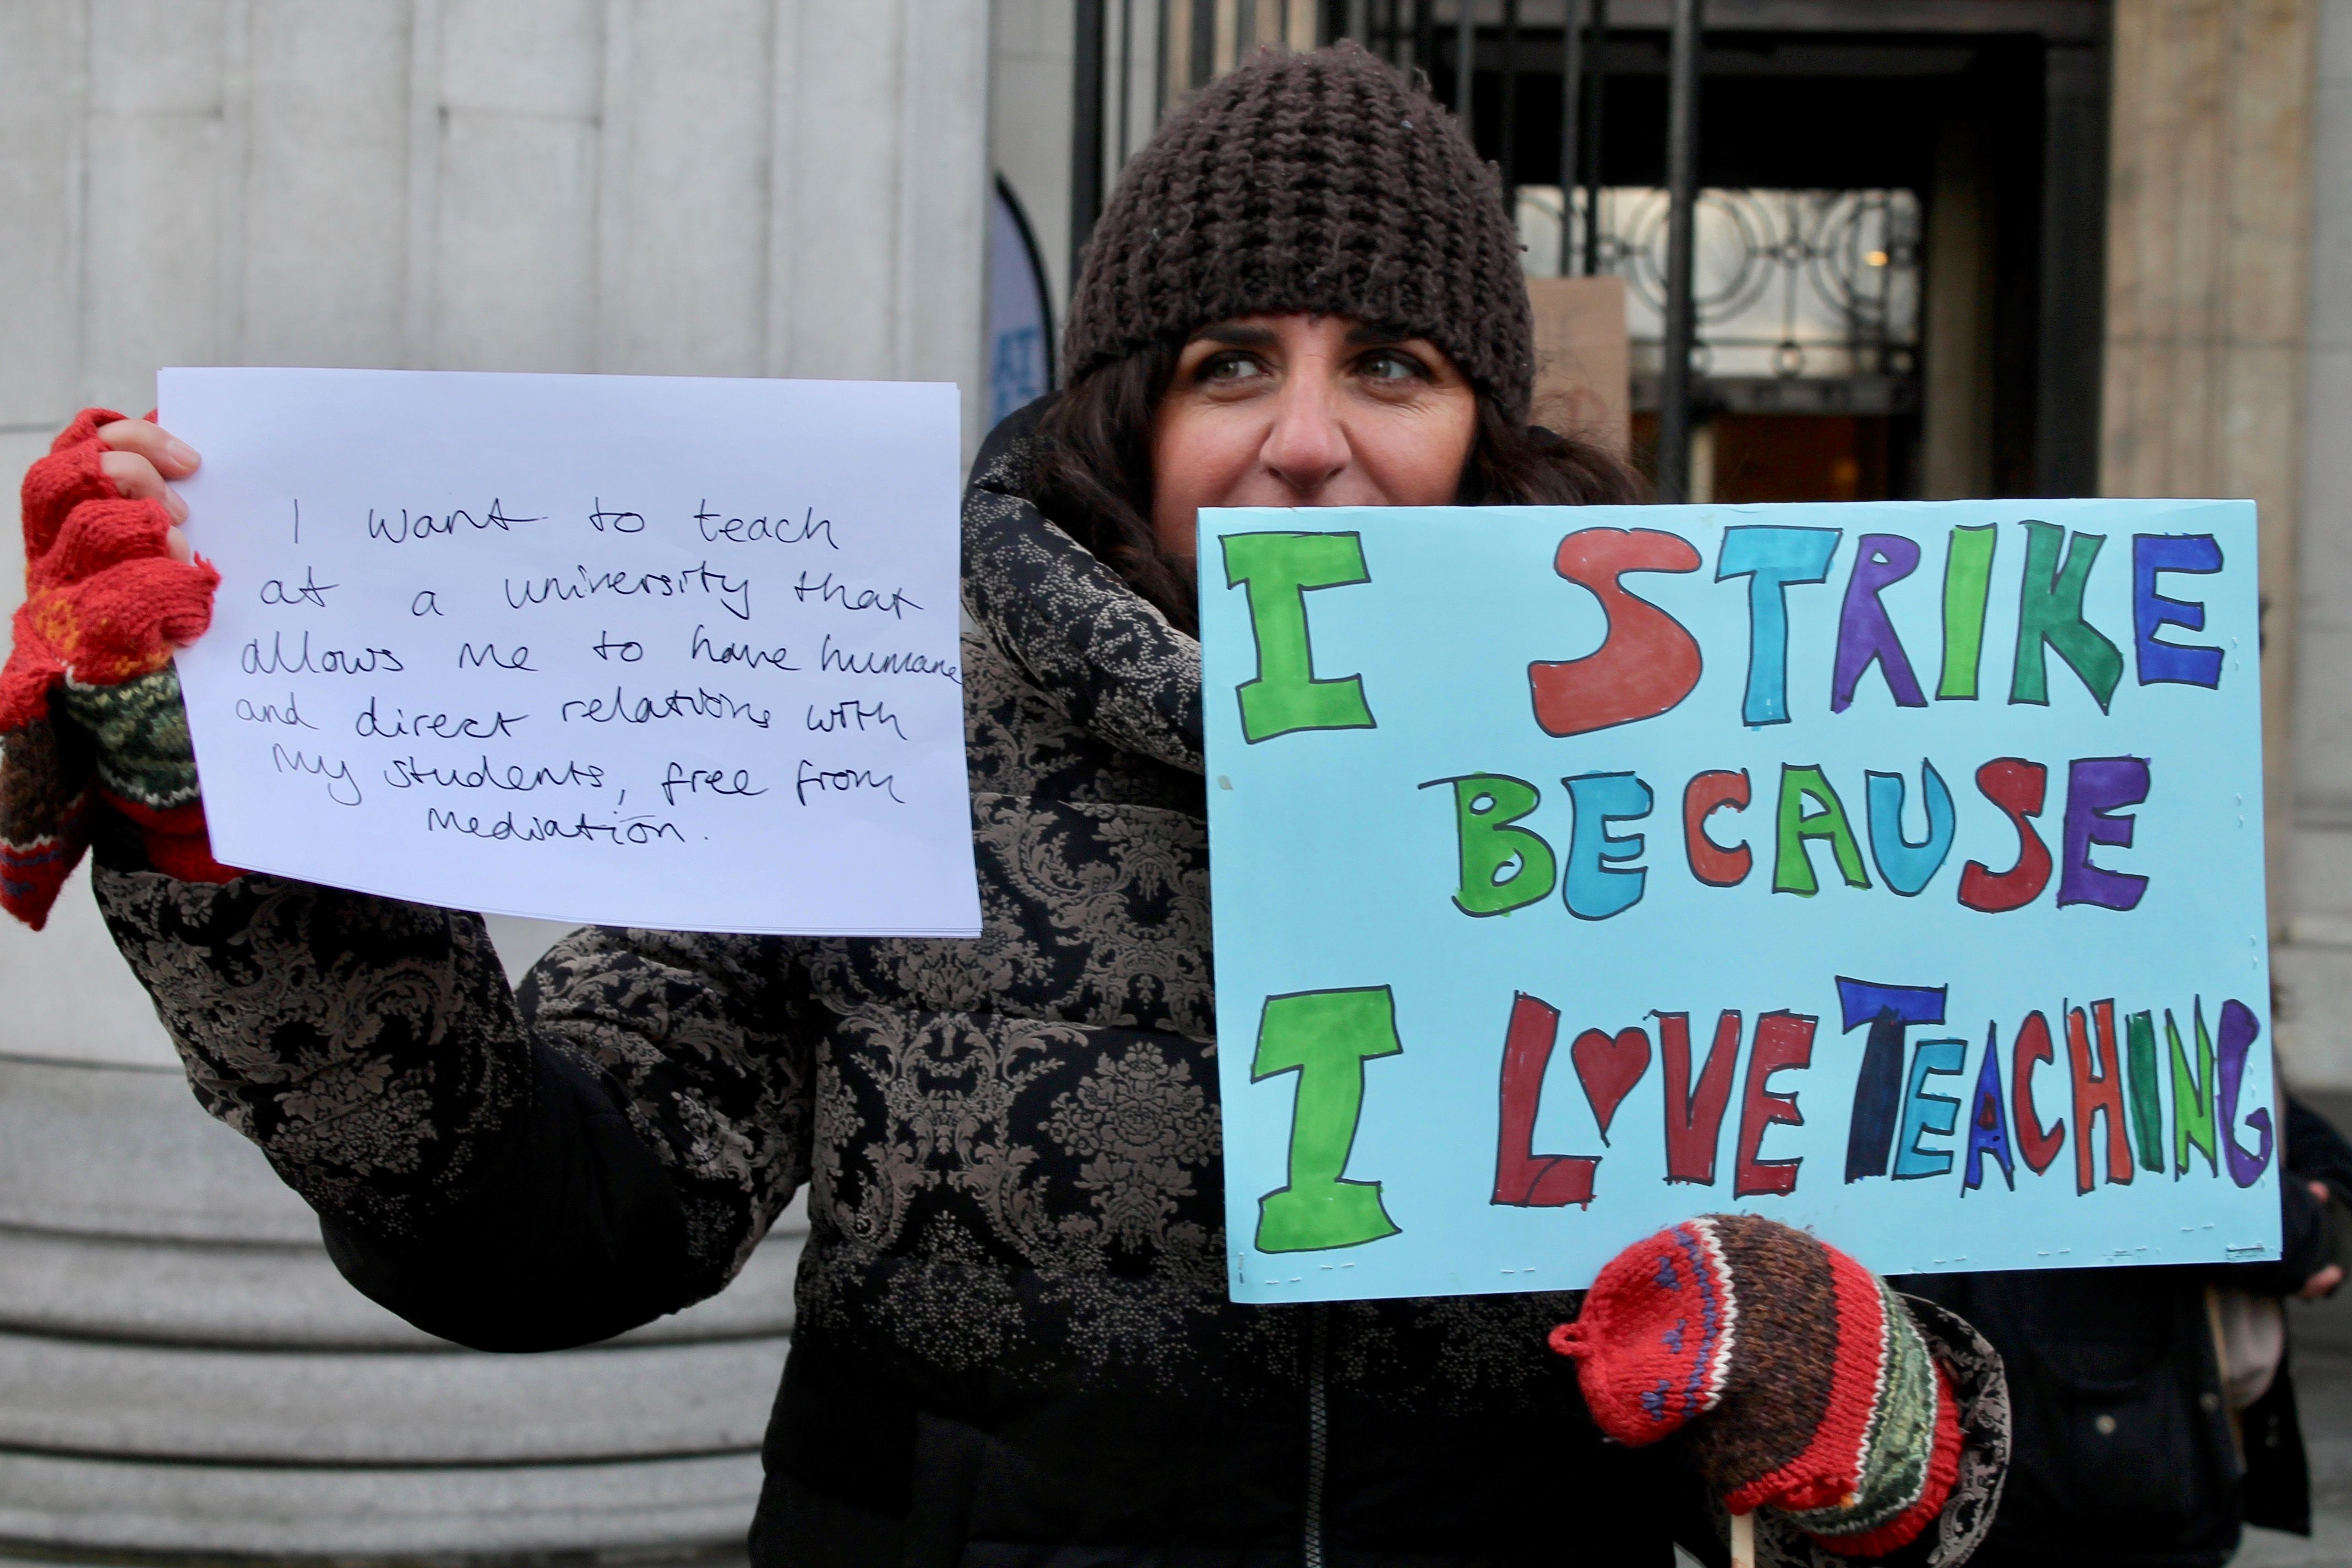 I want to teach
at a university that
allows me to have humane
and direct relations with
my students, free from
mediation.
I STRIKE
BECAUSE
I L♥VE TEACHING